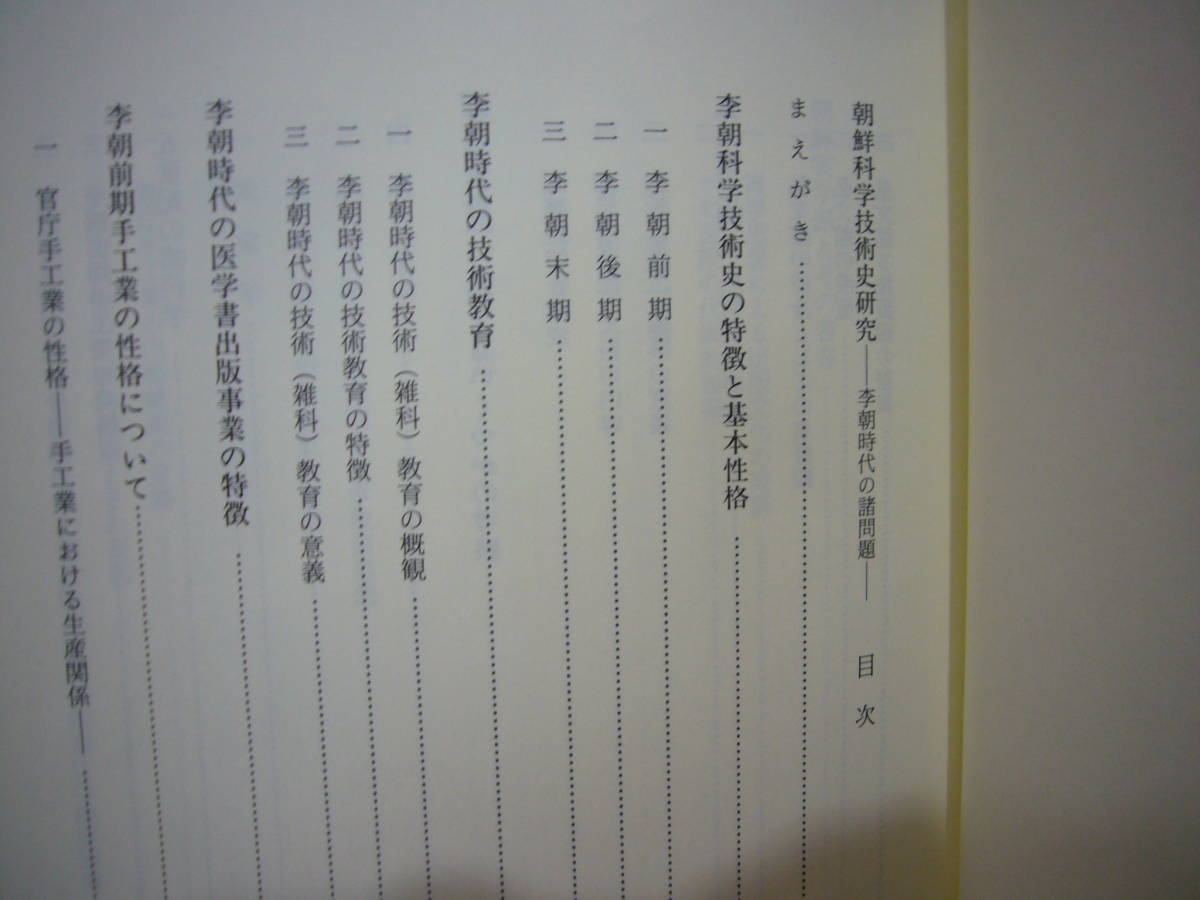 朝鮮科学技術史研究――李朝時代の諸問題――　目次
まえがき……………………
李朝科学技術史の特徴と基本性格……………………
一　李朝前期……………………
二　李朝後期……………………
三　李朝末期……………………
李朝時代の技術教育……………………
一　李朝時代の技術（雑科）教育の概観……………………
二　李朝時代の技術教育の特徴……………………
三　李朝時代の技術（雑科）教育の意義……………………
李朝時代の医学書出版事業の特徴……………………
李朝前期手工業の性格について……………………
一　官庁手工業の性格――手工業における生産関係――……………………